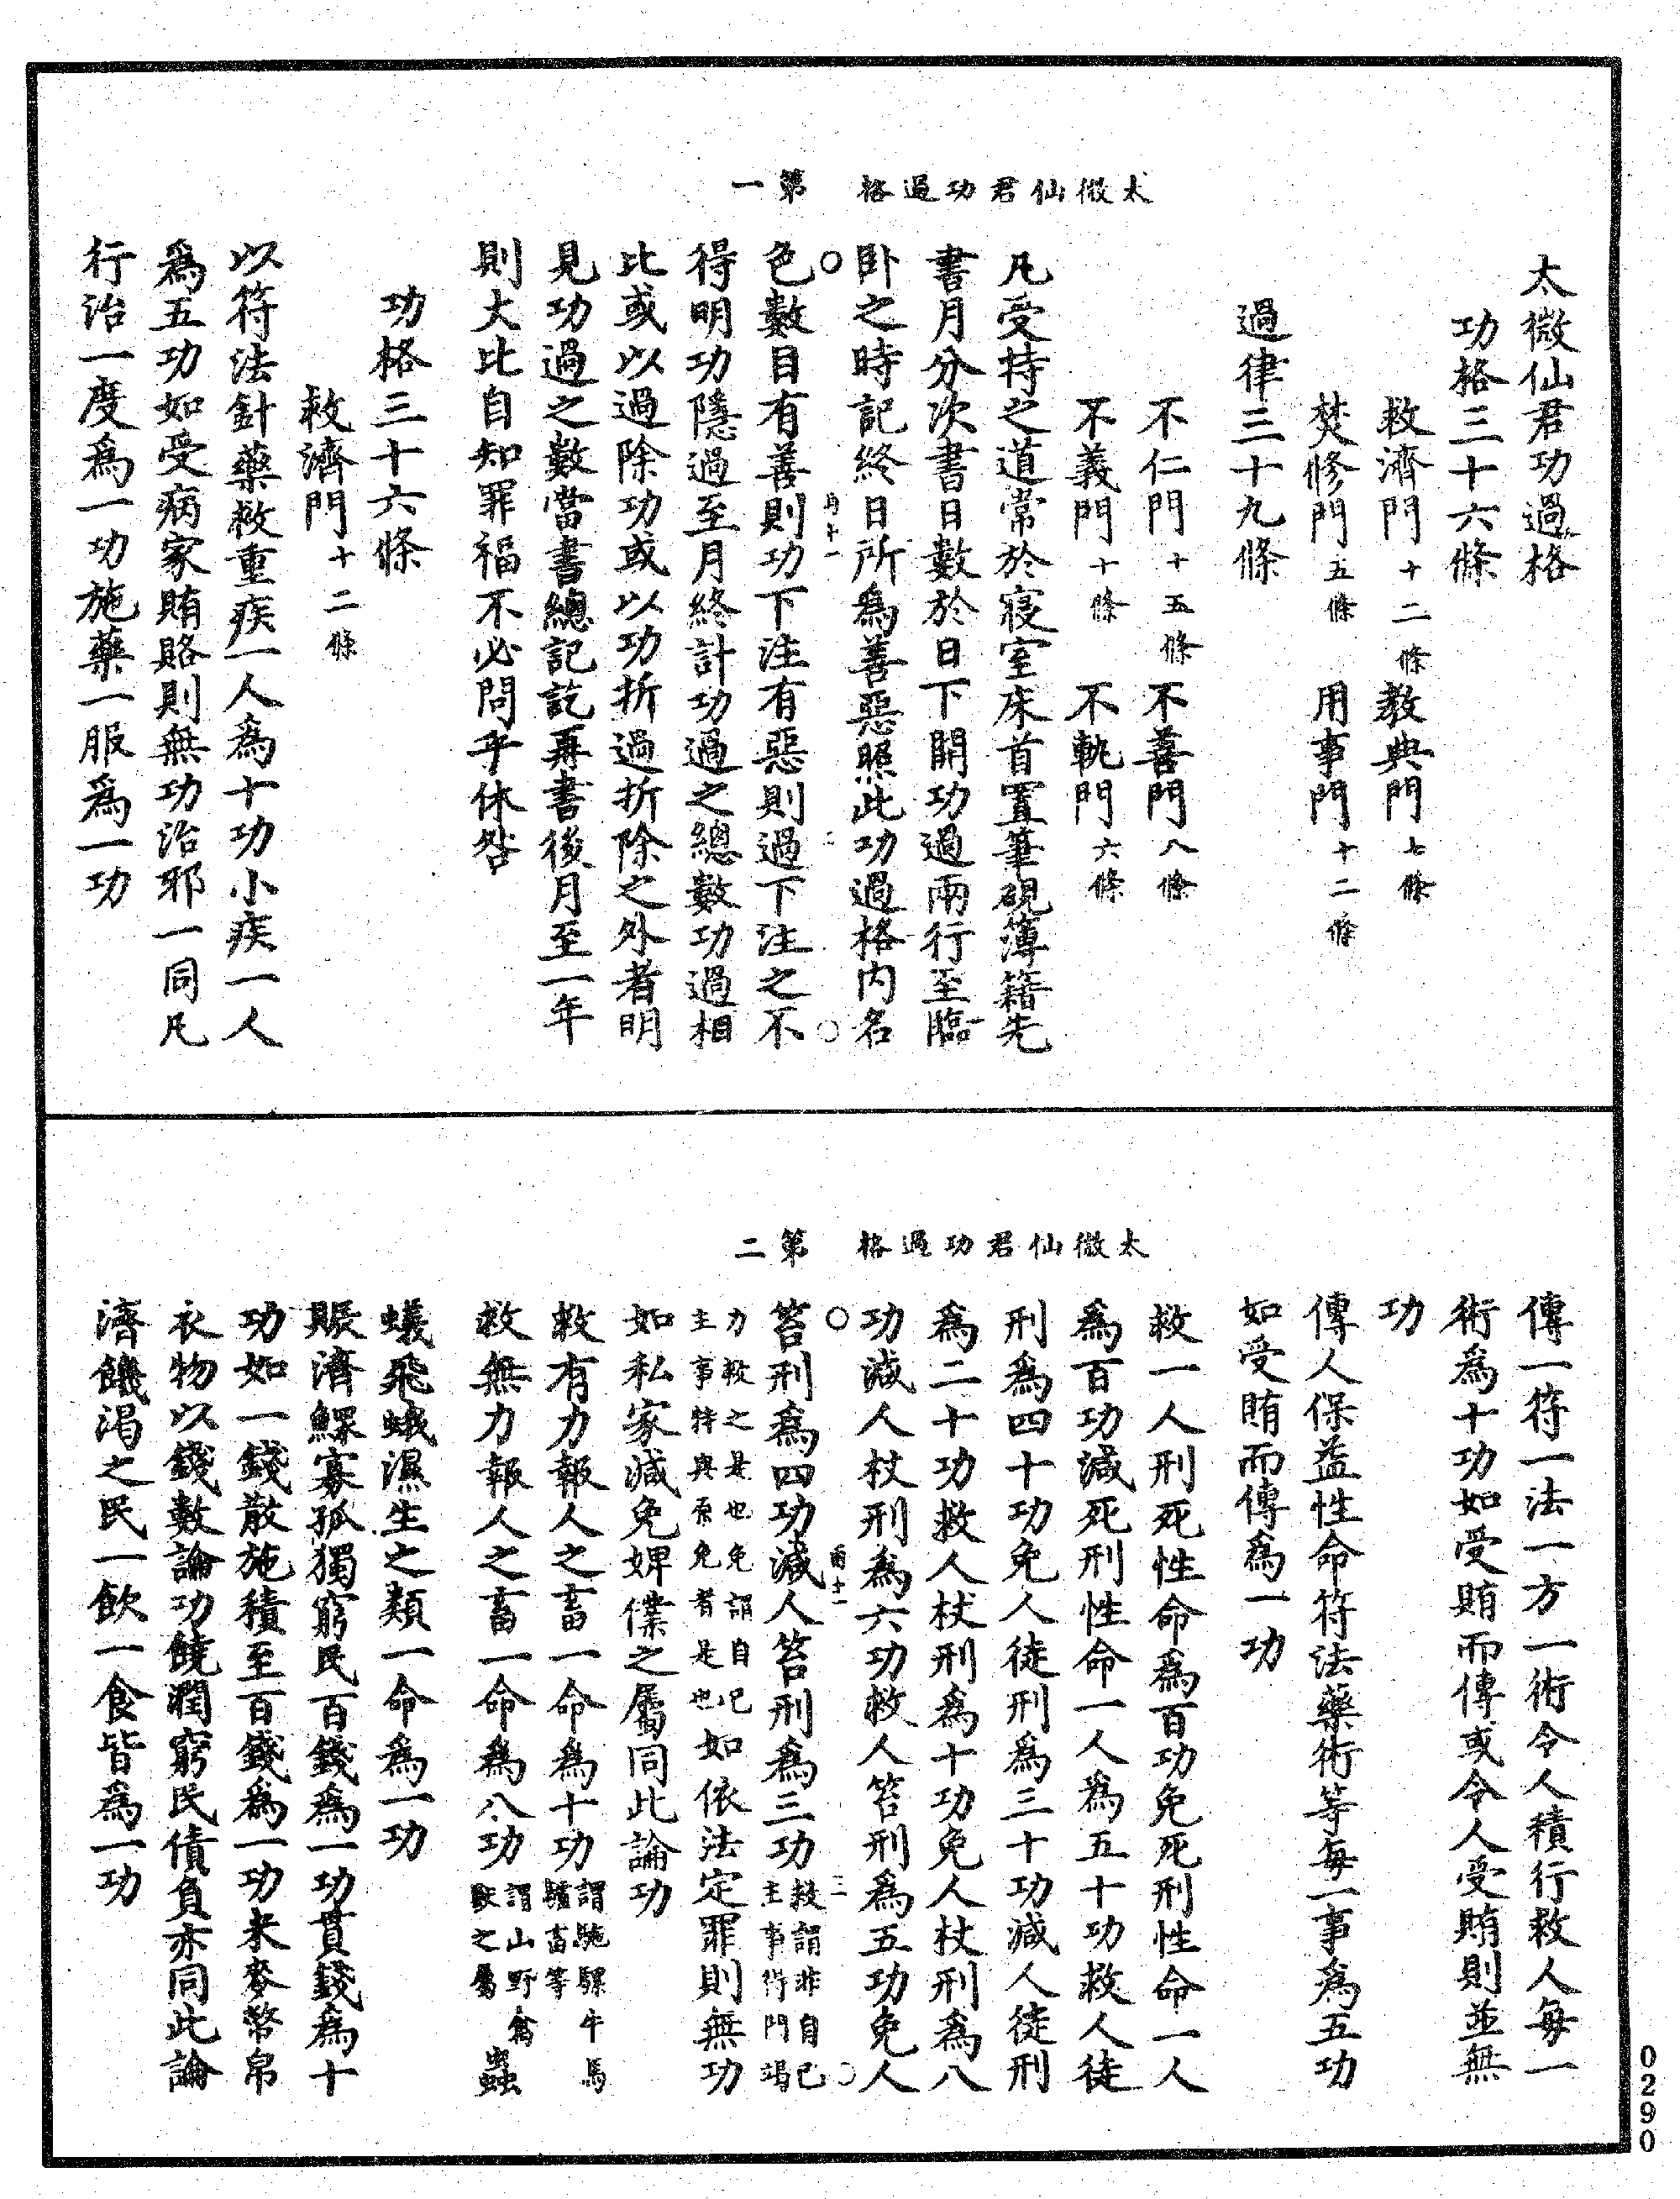 太微仙君功過格　第一
太微仙君功過格
功格三十六條
救濟門十二條　教典門七條
焚修門五條　用事門十二條
過律三十九條
不仁門十五條　不善門八條
不義門十條　不軌門六條
凡受持之道常於寢室床首置筆硯簿籍先
書月分次書日數於日下開功過兩行至臨
臥之時記終日所爲善惡照此功過格內名
色數目有善則功下注有惡則過下注之不
得明功隱過至月終計功過之總數功過相
比或以過除功或以功折過折除之外者明
見功過之數當書總記訖再書後月至一年
則大比自知罪福不必問乎休咎
功格三十六條
救濟門十二條
以符法針藥救重疾一人爲十功小疾一人
爲五功如受病家賄賂則無功治邪一同凡
行治一度爲一功施藥一服爲一功
太微仙君功過格　第二
傳一符一法一方一術令人積行救人每一
術爲十功如受賄而傳或令人受賄則並無
功
傳人保益性命符法藥術等每一事爲五功
如受賄而傳爲一功
救一人刑死性命爲百功免死刑性命一人
爲百功減死刑性命一人爲五十功救人徒
刑爲四十功免人徒刑爲三十功減人徒刑
爲二十功救人杖刑爲十功免人杖刑爲八
功減人杖刑爲六功救人笞刑爲五功免人
笞刑爲四功減人笞刑爲三功救謂非自己主事衙門竭
力救之是也免謂自己主事特與原免者是也如依法定罪則無功
如私家減免婢僕之屬同此論功
救有力報人之畜一命爲十功謂駞騾牛馬驢畜等
救無力報人之畜一命爲八功謂山野禽獸之屬蟲
蟻飛蛾濕生之類一命爲一功
賑濟鰥寡孤獨窮民百錢爲一功貫錢爲十
功如一錢散施積至百錢爲一功米麥幣帛
衣物以錢數論功饒潤窮民債負亦同此論
濟饑渴之民一飲一食皆爲一功
0290